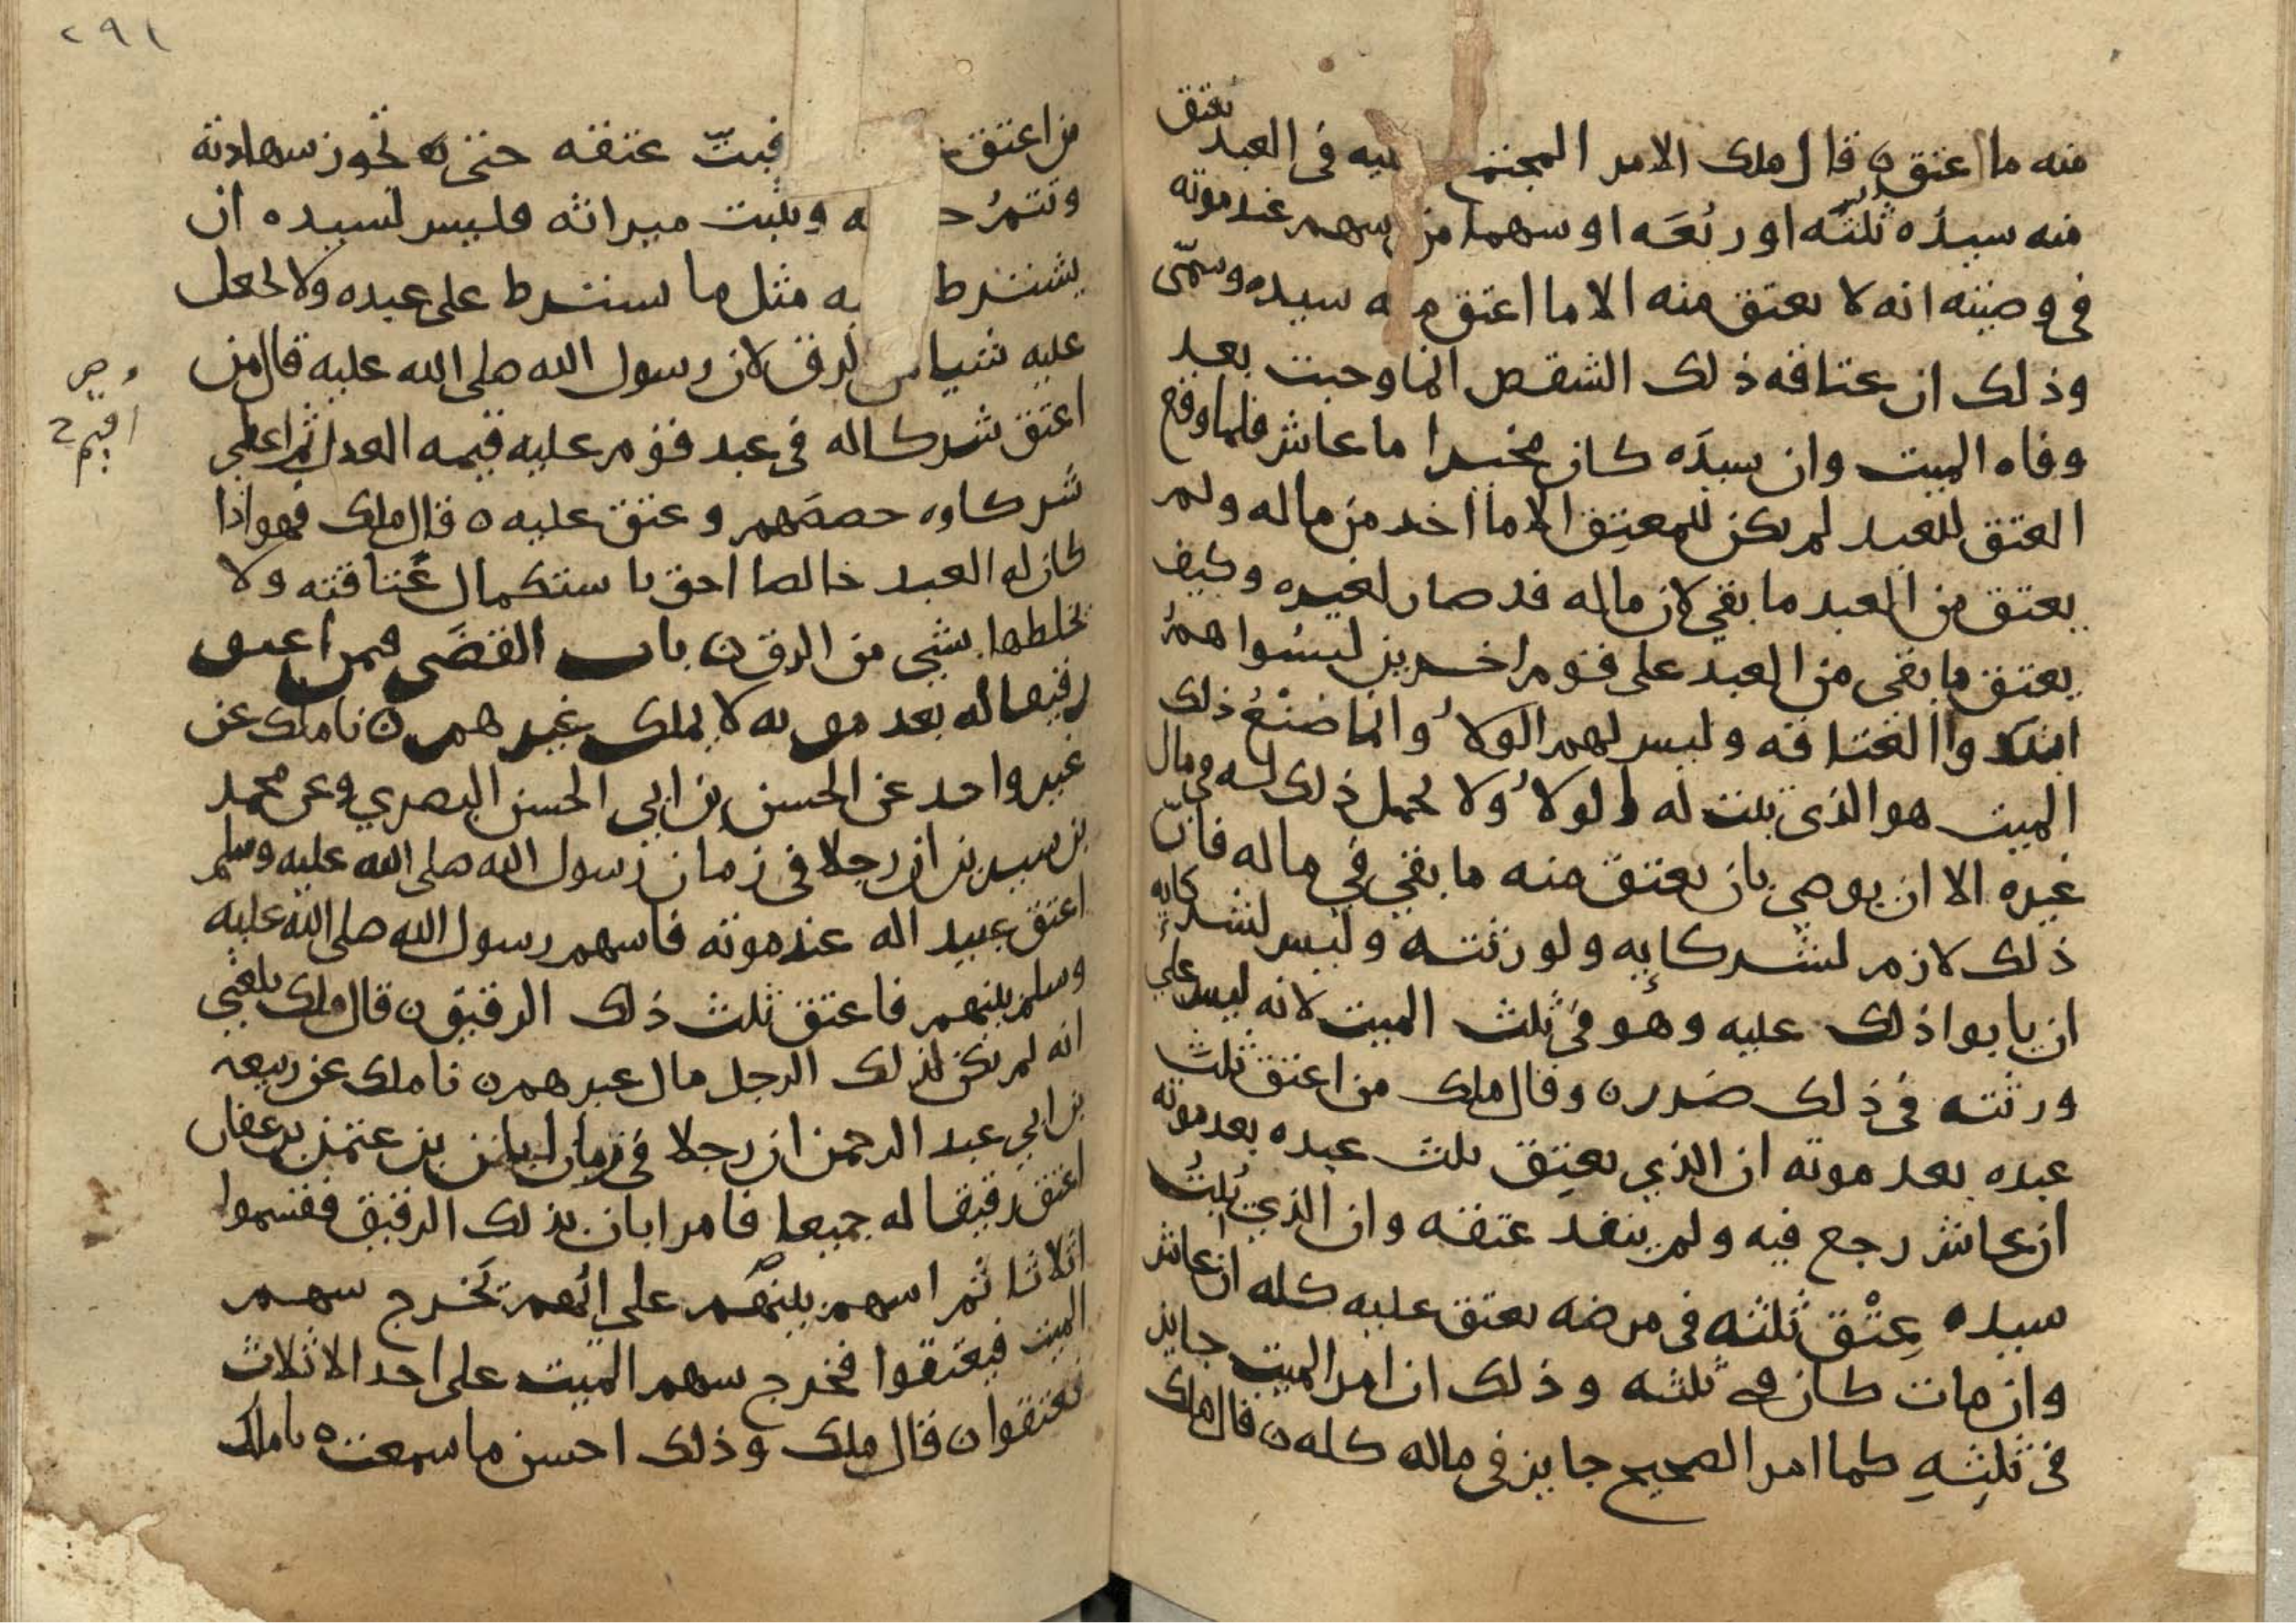 منه ما اعتق ن قال ملك الامر المجتمع عليه فى العبد يعتق
منه سيده ثلثه او ربعه او سهما من سهم عند موته
فى وصيته انه لا يعتق منه الا ما اعتق منه سيده وسمى
وذلك ان عتاقه ذلك الشقص انما وجبت بعد
وفاه الميت وان سيده كان مخيرا ما عاش فلما وقع
العتق للعبد لم يكن للمعتق الا ما اخد من ماله ولم
يعتق من العبد ما بقي لان ماله قد صار لغيره وكيف
يعتق ما بقى من العبد على قوم اخرين ليسوا هم
ابتدوا العتاقه وليس لهم الولا وانما صنع ذلك
الميت هو الذى يثبت له الولا ولا يحمل ذلك له فى مال
غيره الا ان يوصي بان يعتق منه ما بقي في ماله فان
ذلك لازم لشركايه ولورثته وليس لشركايه
ان يابوا ذلك عليه وهو فى ثلث الميت لانه ليس على
ورثته فى ذلك ضرر ن وقال ملك من اعتق ثلث
عبده بعد موته ان الذي يعتق ثلث عبده بعد موته
ان عاش رجع فيه ولم ينفد عتقه وان الذي يثبت
سيده عتق ثلثه فى مرضه يعتق عليه كله ان عاش
وان مات كان في ثلثه وذلك ان امر الميت جايز
فى ثلثه كما امر الصحيح جايز فى ماله كله ن قال ملك
٢٩١
من اعتق فبت عتقه حتى تجوز شهادته
وتتم ويثبت ميراثه فليس لسيده ان
يشترط مثل ما يشترط على عبده ولا يحمل
عليه شيا من الرق لان رسول الله صلى الله عليه قال من
اعتق شركا له فى عبد قوم عليه قيمه العدل ثم اعطي
شركاوه حصصهم وعتق عليه ه قال ملك فهو اذا
كان له العبد خالصا احق باستكمال عتاقته ولا
يخلطها بشي من الرق ن باب القضى فيمن اعتق
رقيقا له بعد موته لا يملك غيرهم ن نا ملك عن
غير واحد عن الحسن بن ابي الحسن البصري وعن محمد
بن سيرين ان رجلا فى زمان رسول الله صلى الله عليه وسلم
اعتق عبيدا له عند موته فاسهم رسول الله صلى الله عليه
وسلم بينهم فاعتق ثلث ذلك الرقيق ن قال ملك بلغني
انه لم يكن لذلك الرجل مال غيرهم ن نا ملك عن ربيعه
بن ابي عبد الرحمن ان رجلا فى زمان ابان بن عثمن بن عفان
اعتق رقيقا له جميعا فامر ابان بذلك الرقيق فقسموا
اثلاثا ثم اسهم بينهم على ايهم يخرج سهم
الميت فيعتقوا فخرج سهم الميت على احد الاثلاث
فعتقوا ن قال ملك وذلك احسن ما سمعت ه نا ملك